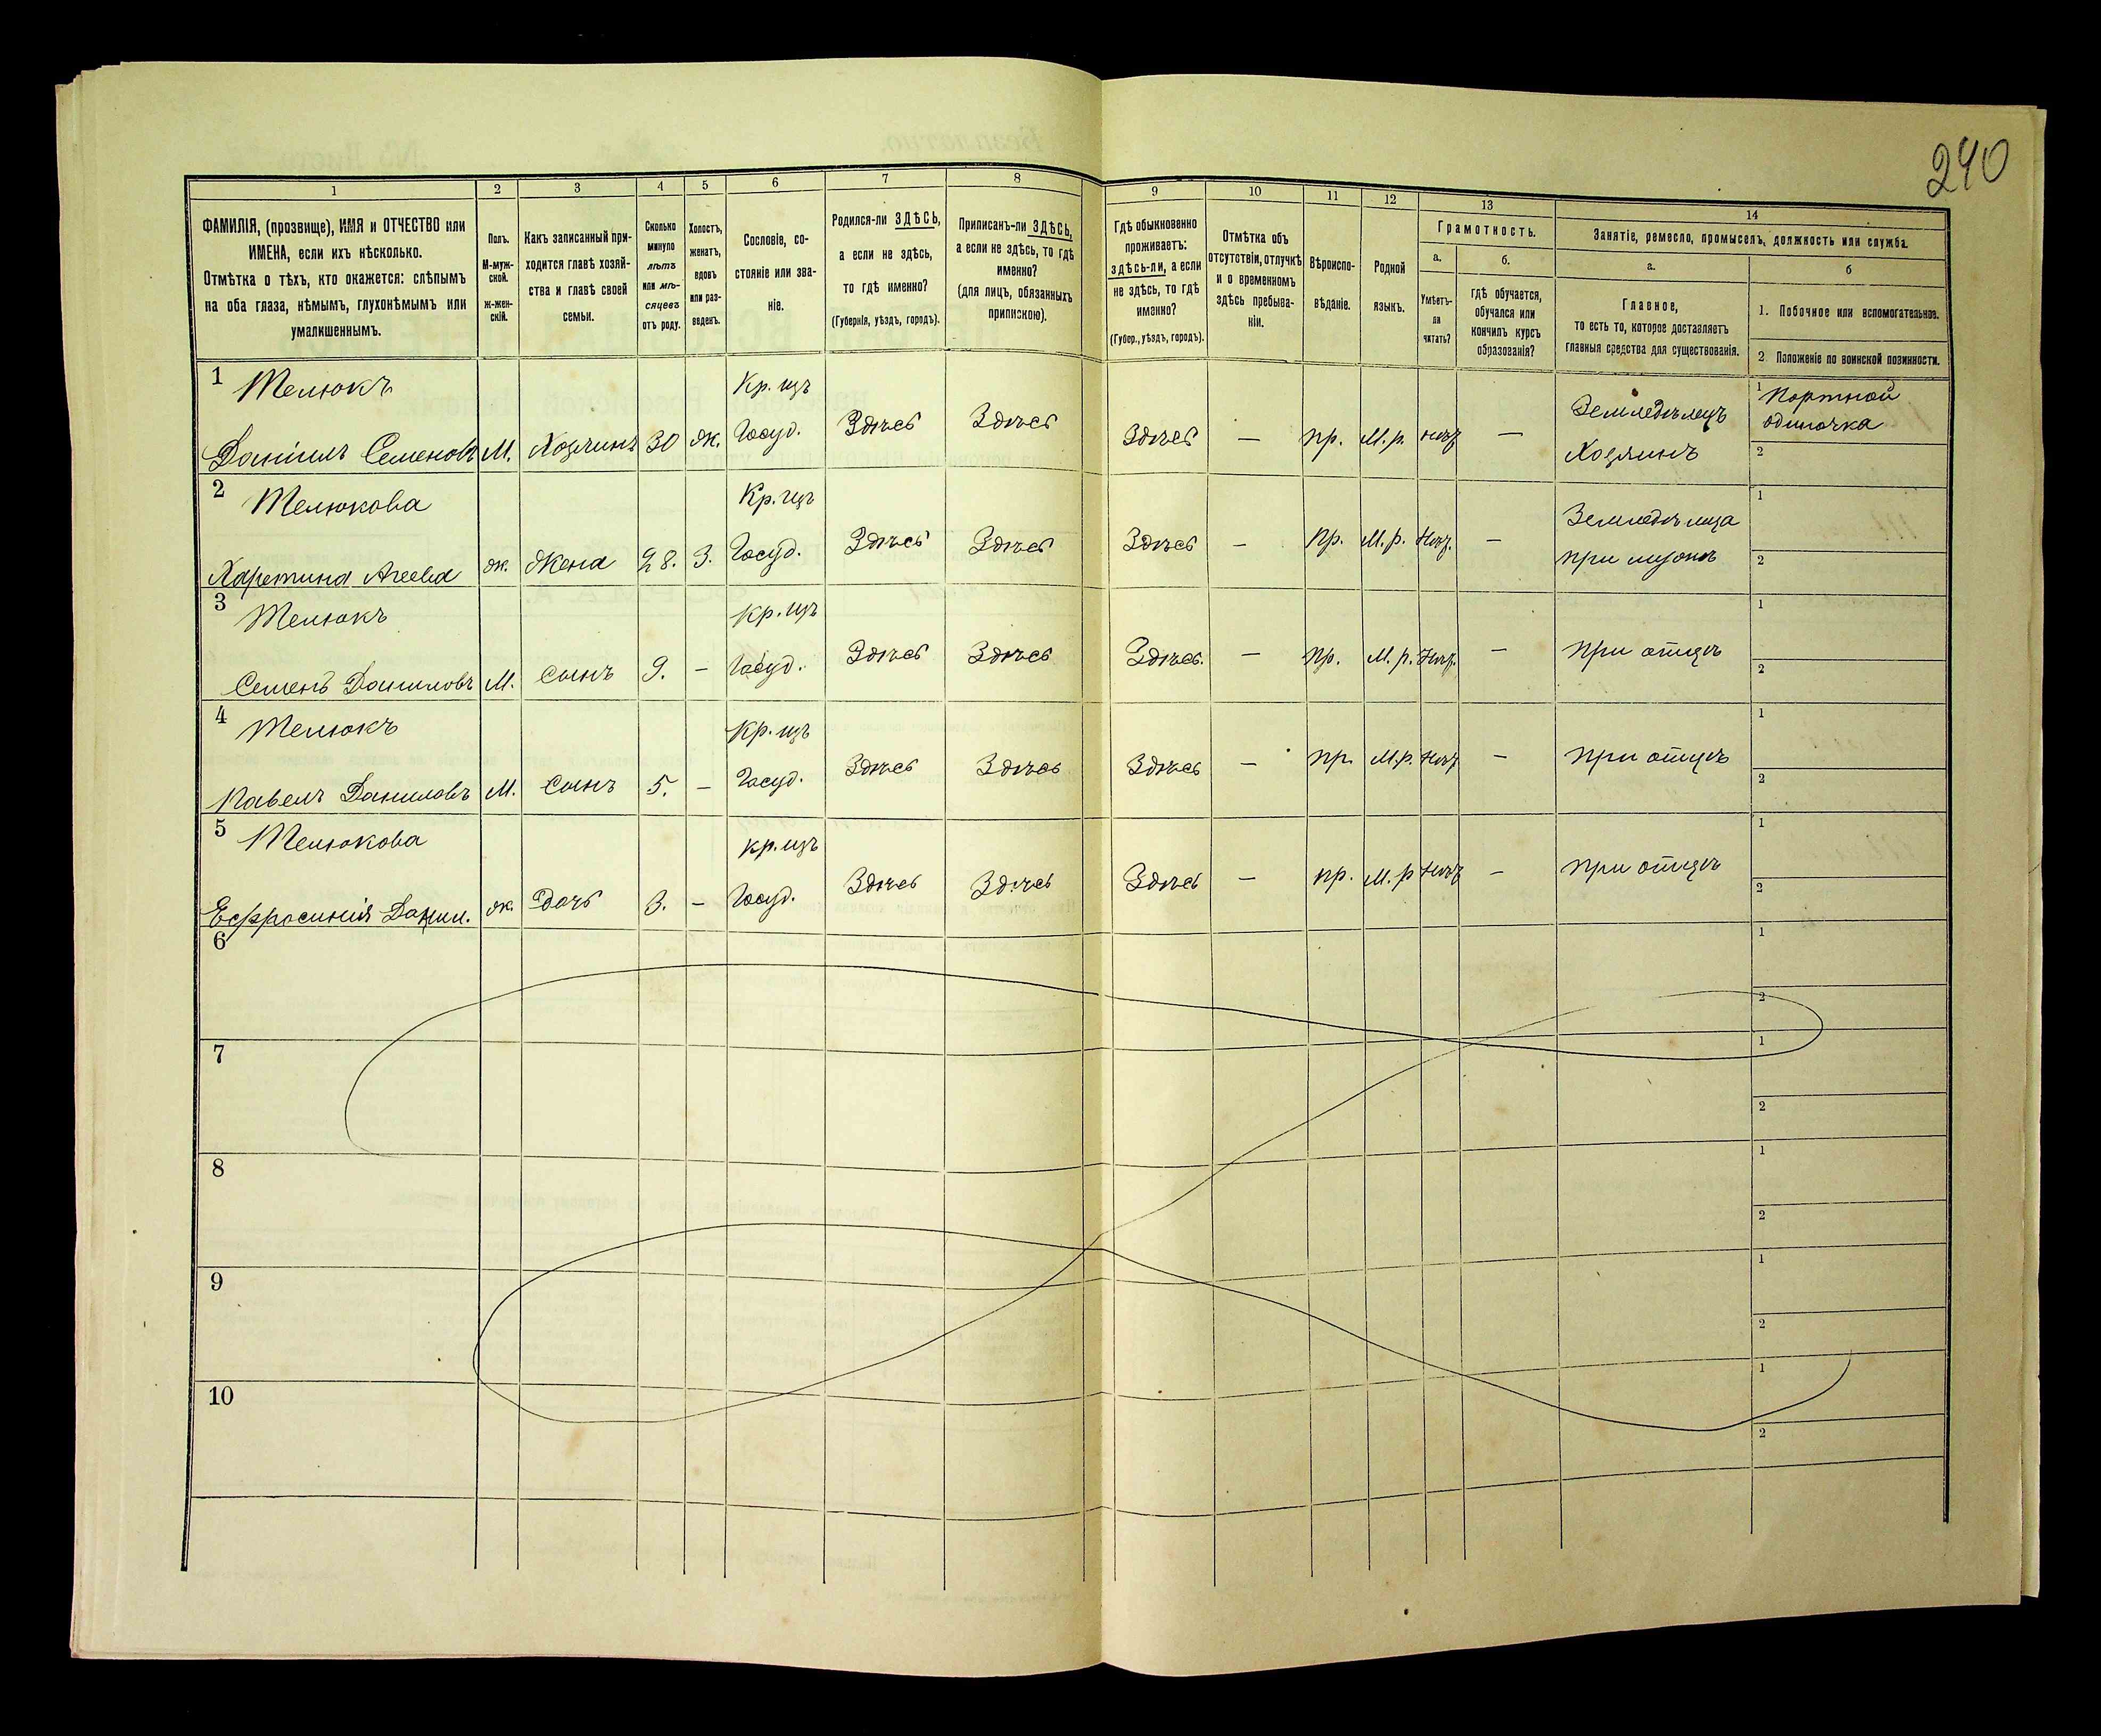 240
1 2 3 4 5 6 7 8 9 10 11 12 13 14
ФАМИЛІЯ, (прозвище), ИМЯ и ОТЧЕСТВО или
ИМЕНА, если ихъ нѣсколько.
Отмѣтка о тѣхъ, кто окажется: слѣпымъ
на оба глаза, нѣмымъ, глухонѣмымъ или
умалишеннымъ.
Полъ.
М-муж-
ской.
ж-жен-
скій.
Какъ записанный при-
ходится главѣ хозяй-
ства и главѣ своей
семьи.
Сколько
минуло
лѣтъ
или мѣ-
сяцевъ
отъ роду.
Холостъ,
женатъ,
вдовъ
или раз-
веденъ.
Сословіе, со-
стояніе или зва-
ніе.
Родился-ли ЗДѢСЬ,
а если не здѣсь,
то гдѣ именно?
(Губернія, уѣздъ, городъ).
Приписанъ-ли ЗДѢСЬ,
а если не здѣсь, то гдѣ
именно?
(для лицъ, обязанныхъ
припискою).
Гдѣ обыкновенно
проживаетъ:
здѣсь-ли, а если
не здѣсь, то гдѣ
именно?
(Губер., уѣздъ, городъ).
Отмѣтка объ
отсутствіи, отлучкѣ
и о временномъ
здѣсь пребыва-
ніи.
Вѣроиспо-
вѣданіе.
Родной
языкъ.
Грамотность.
а.
Умѣетъ-
ли
читать?
б.
гдѣ обучается,
обучался или
кончилъ курсъ
образованія?
Занятіе, ремесло, промыселъ, должность или служба.
а.
Главное,
то есть то, которое доставляетъ
главныя средства для существованія.
б
1. Побочное или вспомогательное.
2 Положеніе по воинской повинности.
1 Телюкъ Кр. изъ Земледѣлецъ 1 Портной
одиночка
Даніилъ Семеновъ М. Хозяинъ 30 ж. Госуд. Здѣсь Здѣсь Здѣсь — пр. М. р. нѣт — Хозяинъ 2
2 Телюкова Кр. изъ Земледѣлица 1
Харетина Агеева ж. Жена 28. З. Госуд. Здѣсь Здѣсь Здѣсь — Пр. М. р. Нѣт. — при мужѣ 2
3 Телюкъ Кр. изъ 1
Семенъ Даниловъ М. Сынъ 9. — Госуд. Здѣсь Здѣсь Здѣсь. — пр. М. р. Нѣт. — при отцѣ 2
4 Телюкъ Кр. изъ 1
Павелъ Даниловъ М. Сынъ 5. — Госуд. Здѣсь Здѣсь Здѣсь — пр. М. р. Нѣт — при отцѣ 2
5 Телюкова Кр. изъ 1
Ефросинія Данил. ж. Дочь 3. — Госуд. Здѣсь Здѣсь Здѣсь — пр. М. р Нѣт — при отцѣ 2
6 1
2
7 1
2
8 1
2
9 1
2
10 1
2